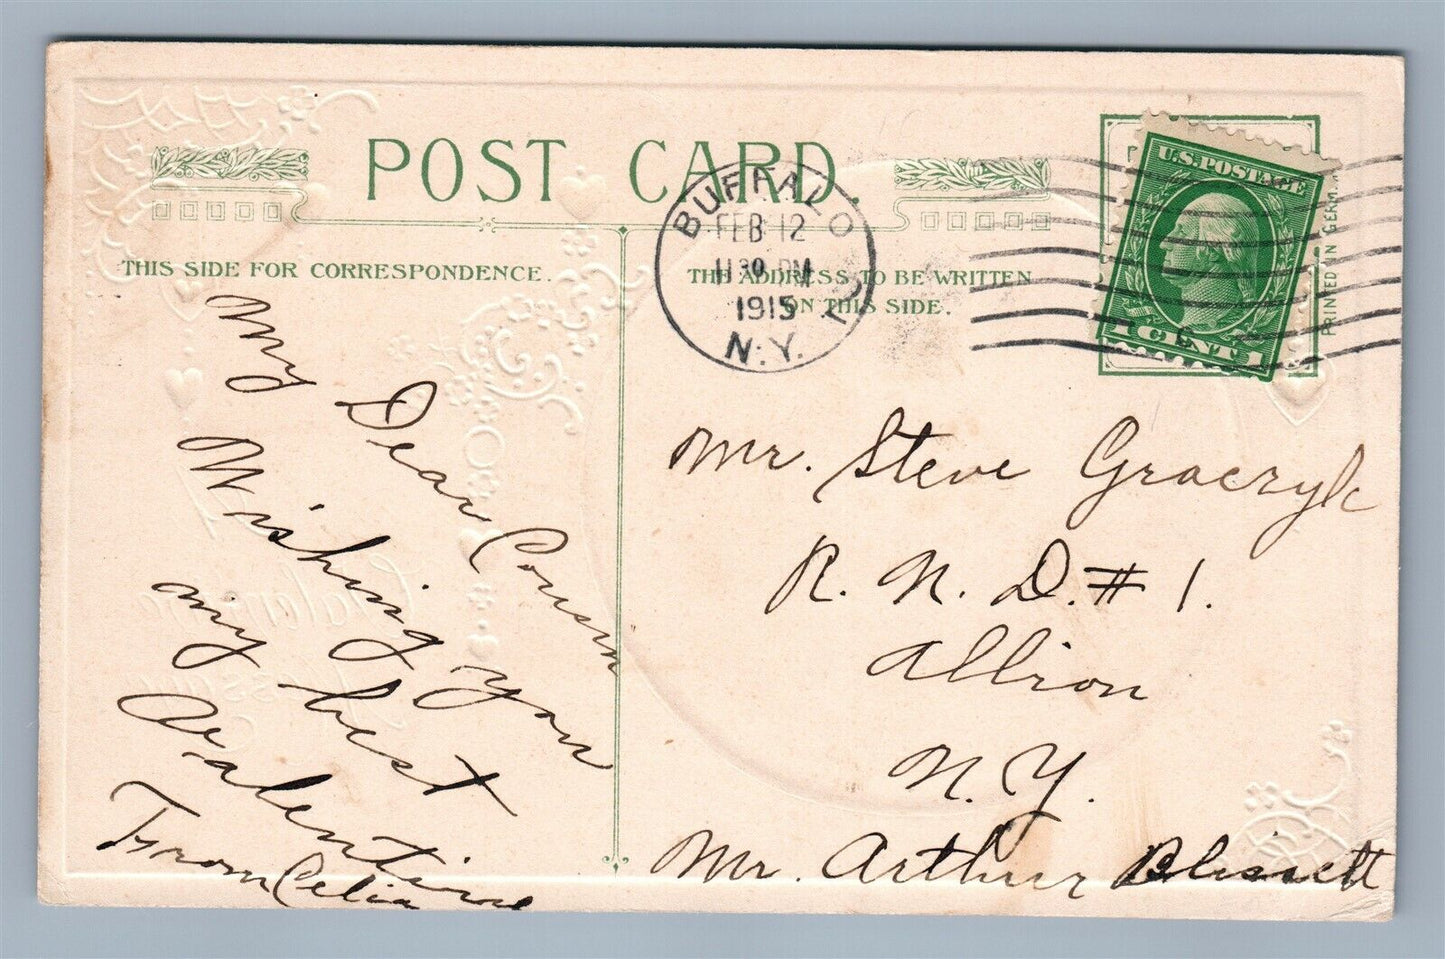 POST CARD.
THIS SIDE FOR CORRESPONDENCE.
THE ADDRESS TO BE WRITTEN
ON THIS SIDE.
BUFFALO
FEB 12
1130 PM
1915
N.Y.
U.S. POSTAGE
1 CENT 1
PRINTED IN GERM
My Dear Cousin
Wishing you
my best
Valentine
From Celia
Mr. Steve Graczyk
R. N. D. # 1.
Albion
N. Y.
Mr. Arthur Blissett